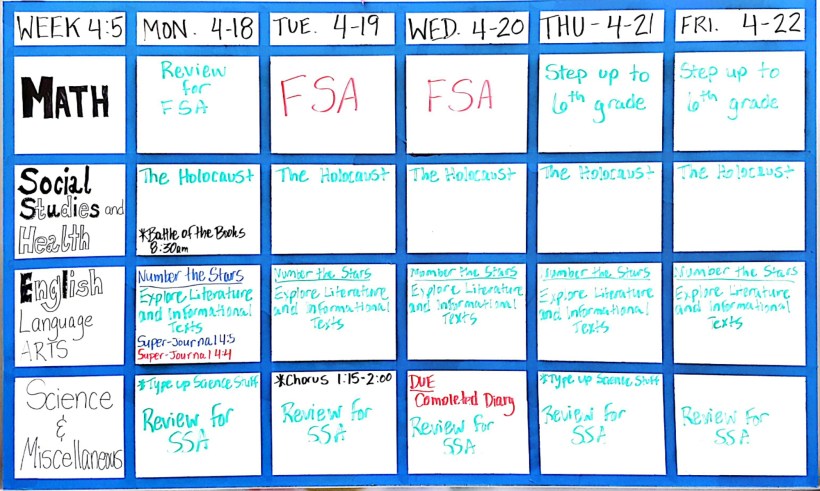 WEEK 4:5
MON. 4-18
TUE. 4-19
WED. 4-20
THU - 4-21
FRI. 4-22
MATH
Review
for
FSA
FSA
FSA
Step up to
6th grade
Step up to
6th grade
Social
Studies and
Health
The Holocaust
*Battle of the Books
8:30am
The Holocaust
The Holocaust
The Holocaust
The Holocaust
English
Language
ARTS
Number the Stars
Explore Literature
and Informational
Texts
Super-Journal 4:5
Super-Journal 4:4
Number the Stars
Explore Literature
and Informational
Texts
Number the Stars
Explore Literature
and Informational
Texts
Number the Stars
Explore Literature
and Informational
Texts
Number the Stars
Explore Literature
and Informational
Texts
Science
&
Miscellaneous
*Type up Science Stuff
Review for
SSA
*Chorus 1:15-2:00
Review for
SSA
DUE
Completed Diary
Review for
SSA
*Type up Science Stuff
Review for
SSA
Review for
SSA